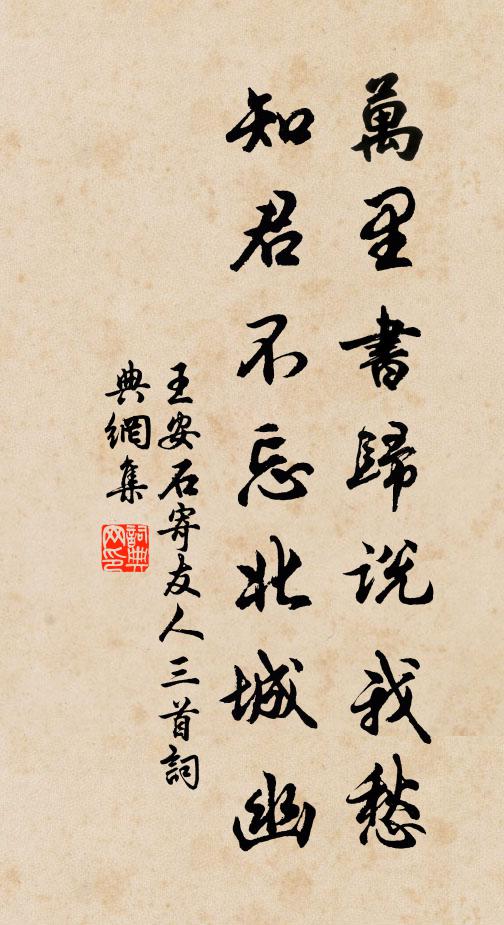 萬里書歸説我愁
知君不忘北城幽
王安石寄友人三首詞
典網集
詞典網印